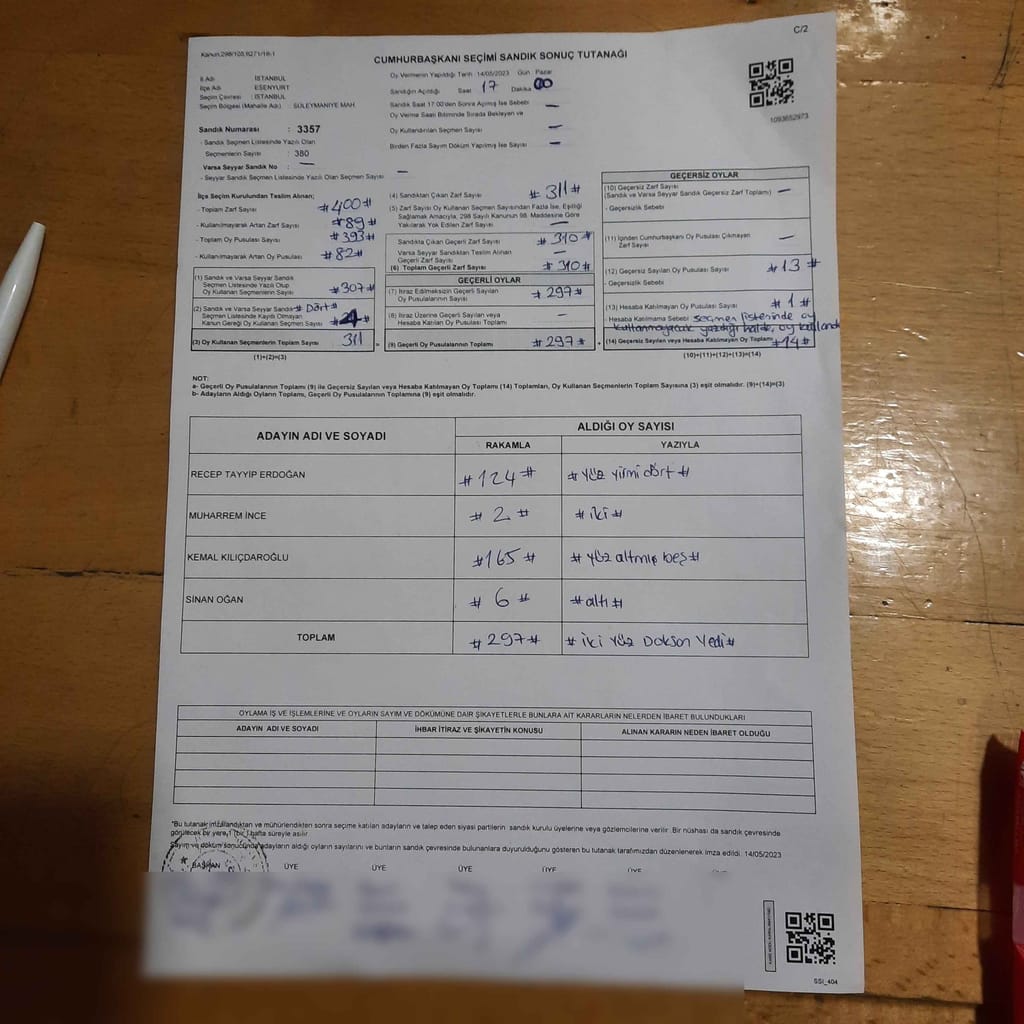 C/2
Kanun:298/105,6271/18-1
CUMHURBAŞKANI SEÇİMİ SANDIK SONUÇ TUTANAĞI
İl Adı : İSTANBUL
İlçe Adı : ESENYURT
Seçim Çevresi : İSTANBUL
Seçim Bölgesi (Mahalle Adı) : SÜLEYMANİYE MAH.
Sandık Numarası : 3357
- Sandık Seçmen Listesinde Yazılı Olan
Seçmenlerin Sayısı : 380
Varsa Seyyar Sandık No : —
- Seyyar Sandık Seçmen Listesinde Yazılı Olan Seçmen Sayısı —
Oy Vermenin Yapıldığı Tarih :14/05/2023 Gün : Pazar
Sandığın Açıldığı Saat 17 Dakika 00
Sandık Saat 17:00'den Sonra Açılmış İse Sebebi —
Oy Verme Saati Bitiminde Sırada Bekleyen ve
Oy Kullandırılan Seçmen Sayısı —
Birden Fazla Sayım Döküm Yapılmış İse Sayısı —
1093652973
İlçe Seçim Kurulundan Teslim Alınan;
- Toplam Zarf Sayısı #400#
- Kullanılmayarak Artan Zarf Sayısı #89#
- Toplam Oy Pusulası Sayısı #393#
- Kullanılmayarak Artan Oy Pusulası #82#
(1) Sandık ve Varsa Seyyar Sandık
Seçmen Listesinde Yazılı Olup
Oy Kullanan Seçmenlerin Sayısı #307#
(2) Sandık ve Varsa Seyyar Sandık #Dört#
Seçmen Listesinde Kayıtlı Olmayan
Kanun Gereği Oy Kullanan Seçmen Sayısı #4#
(3) Oy Kullanan Seçmenlerin Toplam Sayısı 311
(1)+(2)=(3)
(4) Sandıktan Çıkan Zarf Sayısı #311#
(5) Zarf Sayısı Oy Kullanan Seçmen Sayısından Fazla İse, Eşitliği
Sağlamak Amacıyla, 298 Sayılı Kanunun 98. Maddesine Göre
Yakılarak Yok Edilen Zarf Sayısı —
Sandıkta Çıkan Geçerli Zarf Sayısı #310#
Varsa Seyyar Sandıktan Teslim Alınan
Geçerli Zarf Sayısı —
(6) Toplam Geçerli Zarf Sayısı #310#
GEÇERLİ OYLAR
(7) İtiraz Edilmeksizin Geçerli Sayılan
Oy Pusulalarının Sayısı #297#
(8) İtiraz Üzerine Geçerli Sayılan veya
Hesaba Katılan Oy Pusulası Toplamı —
= (9) Geçerli Oy Pusulalarının Toplamı #297#
GEÇERSİZ OYLAR
(10) Geçersiz Zarf Sayısı
(Sandık ve Varsa Seyyar Sandık Geçersiz Zarf Toplamı) —
- Geçersizlik Sebebi
(11) İçinden Cumhurbaşkanı Oy Pusulası Çıkmayan
Zarf Sayısı —
(12) Geçersiz Sayılan Oy Pusulası Sayısı #13#
- Geçersizlik Sebebi
(13) Hesaba Katılmayan Oy Pusulası Sayısı #1#
- Hesaba Katılmama Sebebi seçmen listesinde oy
kullanmayacak yazdığı halde, oy kullandı
+ (14) Geçersiz Sayılan veya Hesaba Katılmayan Oy Toplamı #14#
(10)+(11)+(12)+(13)=(14)
NOT:
a- Geçerli Oy Pusulalarının Toplamı (9) ile Geçersiz Sayılan veya Hesaba Katılmayan Oy Toplamı (14) Toplamları, Oy Kullanan Seçmenlerin Toplam Sayısına (3) eşit olmalıdır. (9)+(14)=(3)
b- Adayların Aldığı Oyların Toplamı, Geçerli Oy Pusulalarının Toplamına (9) eşit olmalıdır.
ADAYIN ADI VE SOYADI ALDIĞI OY SAYISI
RAKAMLA YAZIYLA
RECEP TAYYİP ERDOĞAN #124# #Yüz Yirmi dört#
MUHARREM İNCE #2# #iki#
KEMAL KILIÇDAROĞLU #165# #Yüz altmış beş#
SİNAN OĞAN #6# #altı#
TOPLAM #297# #iki Yüz Doksan Yedi#
OYLAMA İŞ VE İŞLEMLERİNE VE OYLARIN SAYIM VE DÖKÜMÜNE DAİR ŞİKAYETLERLE BUNLARA AİT KARARLARIN NELERDEN İBARET BULUNDUKLARI
ADAYIN ADI VE SOYADI İHBAR İTİRAZ VE ŞİKAYETİN KONUSU ALINAN KARARIN NEDEN İBARET OLDUĞU
*Bu tutanak imzalandıktan ve mühürlendikten sonra seçime katılan adayların ve talep eden siyasi partilerin sandık kurulu üyelerine veya gözlemcilerine verilir. Bir nüshası da sandık çevresinde
görülecek bir yere 1 (bir) hafta süreyle asılır.
Sayım ve döküm sonucunda adayların aldığı oyların sayılarını ve bunların sandık çevresinde bulunanlara duyurulduğunu gösteren bu tutanak tarafımızdan düzenlenerek imza edildi. 14/05/2023
BAŞKAN ÜYE ÜYE ÜYE ÜYE ÜYE ÜYE
SSİ_404